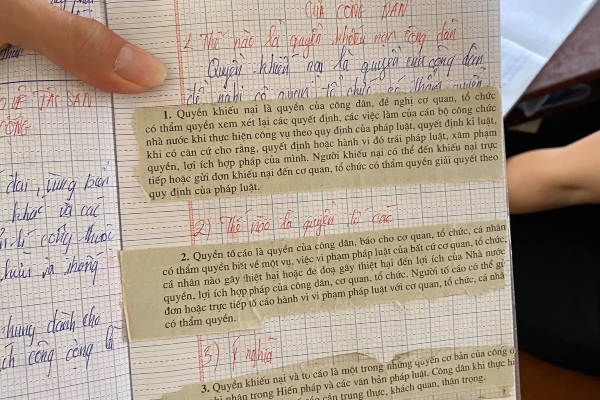 CỦA CÔNG DÂN
1. Thế nào là quyền khiếu nại công dân
Quyền khiếu nại là quyền của công dân,
đề nghị cơ quan tổ chức có thẩm quyền
1. Quyền khiếu nại là quyền của công dân, đề nghị cơ quan, tổ chức
có thẩm quyền xem xét lại các quyết định, các việc làm của cán bộ công chức
nhà nước khi thực hiện công vụ theo quy định của pháp luật, quyết định kỉ luật,
khi có căn cứ cho rằng, quyết định hoặc hành vi đó trái pháp luật, xâm phạm
quyền, lợi ích hợp pháp của mình. Người khiếu nại có thể đến khiếu nại trực
tiếp hoặc gửi đơn khiếu nại đến cơ quan, tổ chức có thẩm quyền giải quyết theo
quy định của pháp luật.
2) Thế nào là quyền tố cáo
2. Quyền tố cáo là quyền của công dân, báo cho cơ quan, tổ chức, cá nhân
có thẩm quyền biết về một vụ, việc vi phạm pháp luật của bất cứ cơ quan, tổ chức,
cá nhân nào gây thiệt hại hoặc đe doạ gây thiệt hại đến lợi ích của Nhà nước
quyền, lợi ích hợp pháp của công dân, cơ quan, tổ chức. Người tố cáo có thể gử
đơn hoặc trực tiếp tố cáo hành vi vi phạm pháp luật với cơ quan, tổ chức, cá nhâ
có thẩm quyền.
3) Ý nghĩa
3. Quyền khiếu nại và tố cáo là một trong những quyền cơ bản của công
nhận trong Hiến pháp và các văn bản pháp luật. Công dân khi thực hi
cần trung thực, khách quan, thận trọng.
TÀI SẢN
CỘNG
đai, vùng biển
khác và các
công thuộc
và thống
chung dành cho
ch công cộng là